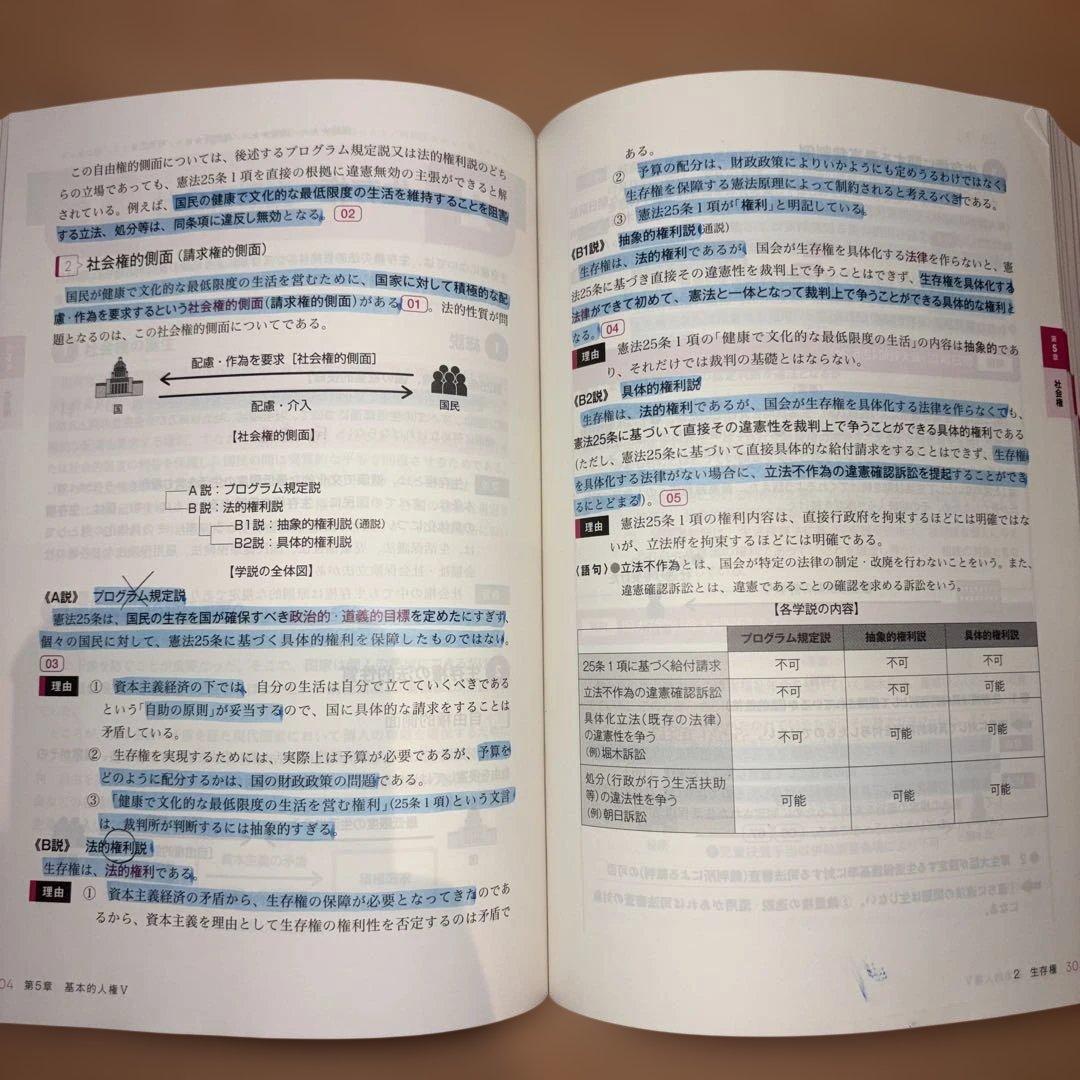 この自由権的側面については、後述するプログラム規定説又は法的権利説のどち
らの立場であっても、憲法25条1項を直接の根拠に違憲無効の主張ができると解
されている。例えば、国民の健康で文化的な最低限度の生活を維持することを阻害
する立法、処分等は、同条項に違反し無効となる。 02
2 社会権的側面（請求権的側面）
国民が健康で文化的な最低限度の生活を営むために、国家に対して積極的な配
慮・作為を要求するという社会権的側面（請求権的側面）がある 01 。法的性質が問
題となるのは、この社会権的側面についてである。
配慮・作為を要求［社会権的側面］
国
国民
配慮・介入
【社会権的側面】
A説：プログラム規定説
B説：法的権利説
B1説：抽象的権利説（通説）
B2説：具体的権利説
【学説の全体図】
《A説》 プログラム規定説
憲法25条は、国民の生存を国が確保すべき政治的・道義的目標を定めたにすぎず、
個々の国民に対して、憲法25条に基づく具体的権利を保障したものではない。
03
理由 ① 資本主義経済の下では、自分の生活は自分で立てていくべきである
という「自助の原則」が妥当するので、国に具体的な請求をすることは
矛盾している。
② 生存権を実現するためには、実際上は予算が必要であるが、予算を
どのように配分するかは、国の財政政策の問題である。
③ 「健康で文化的な最低限度の生活を営む権利」（25条1項）という文言
は、裁判所が判断するには抽象的すぎる。
《B説》 法的権利説
生存権は、法的権利である。
理由 ① 資本主義経済の矛盾から、生存権の保障が必要となってきたのであ
るから、資本主義を理由として生存権の権利性を否定するのは矛盾で
04 第5章 基本的人権Ⅴ
ある。
② 予算の配分は、財政政策によりいかようにも定めうるわけではなく、
生存権を保障する憲法原理によって制約されると考えるべきである。
③ 憲法25条1項が「権利」と明記している。
《B1説》 抽象的権利説（通説）
生存権は、法的権利であるが、国会が生存権を具体化する法律を作らないと、憲
法25条に基づき直接その違憲性を裁判上で争うことはできず、生存権を具体化する
法律ができて初めて、憲法と一体となって裁判上で争うことができる具体的な権利と
なる。 04
理由 憲法25条1項の「健康で文化的な最低限度の生活」の内容は抽象的であ
り、それだけでは裁判の基礎とはならない。
《B2説》 具体的権利説
生存権は、法的権利であるが、国会が生存権を具体化する法律を作らなくても、
憲法25条に基づいて直接その違憲性を裁判上で争うことができる具体的権利である
（ただし、憲法25条に基づいて直接具体的な給付請求をすることはできず、生存権
を具体化する法律がない場合に、立法不作為の違憲確認訴訟を提起することができ
るにとどまる）。 05
理由 憲法25条1項の権利内容は、直接行政府を拘束するほどには明確ではな
いが、立法府を拘束するほどには明確である。
〈語句〉●立法不作為とは、国会が特定の法律の制定・改廃を行わないことをいう。また、
違憲確認訴訟とは、違憲であることの確認を求める訴訟をいう。
【各学説の内容】
プログラム規定説 抽象的権利説 具体的権利説
25条1項に基づく給付請求 不可 不可 不可
立法不作為の違憲確認訴訟 不可 不可 可能
具体化立法（既存の法律）
の違憲性を争う 不可 可能 可能
（例）堀木訴訟
処分（行政が行う生活扶助
等）の違法性を争う 可能 可能 可能
（例）朝日訴訟
第5章
社会権
2 生存権 30